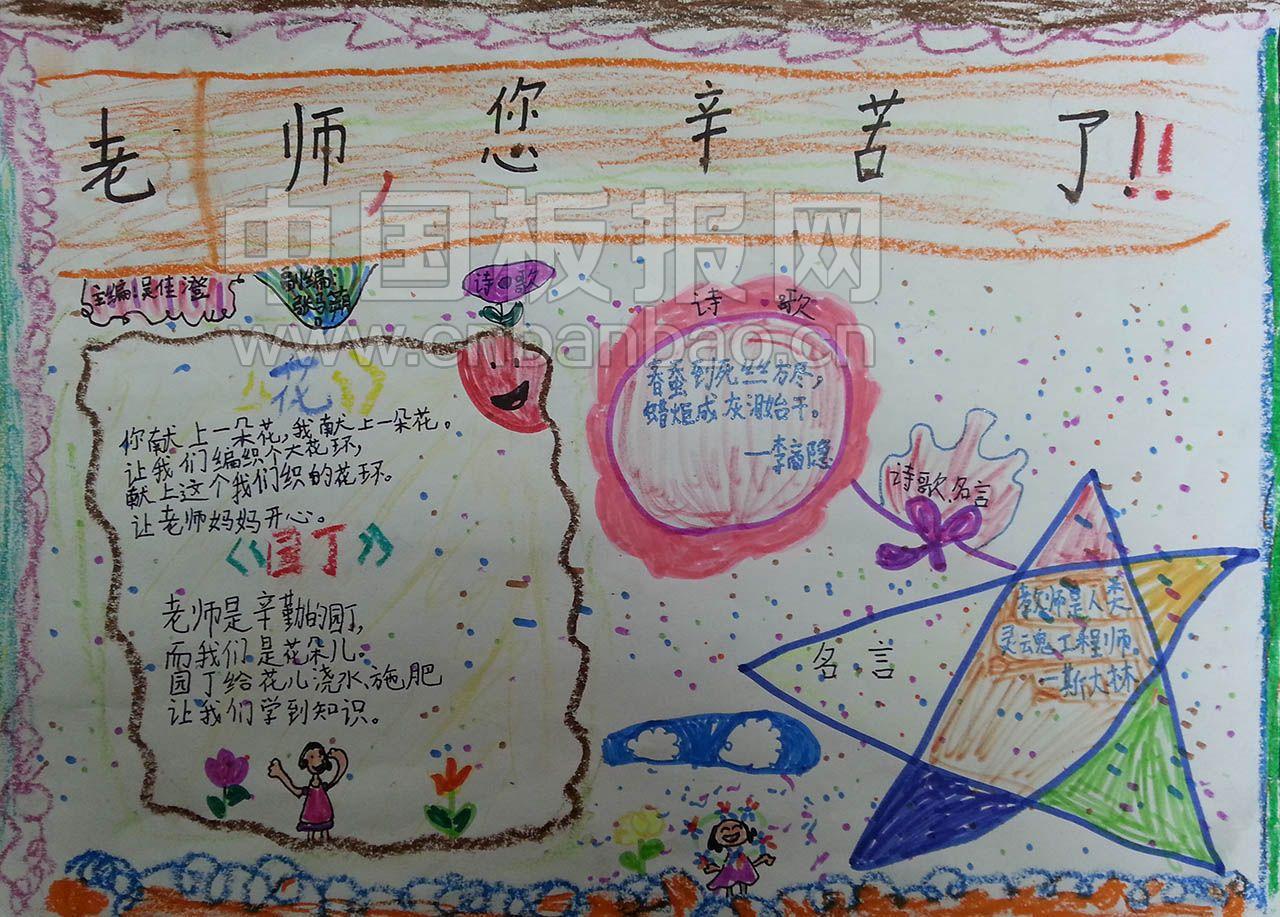 老师,您辛苦了!!!
中国板报网
www.cnbanbao.cn
主编:吴佳澄
副编:
诗歌
《花》
你献上一朵花,我献上一朵花。
让我们编织个大花环,
献上这个我们织的花环。
让老师妈妈开心。
《园丁》
老师是辛勤的园丁,
而我们是花朵儿。
园丁给花儿浇水、施肥
让我们学到知识。
诗歌
春蚕到死丝方尽,
蜡炬成灰泪始干。
—李商隐
诗歌、名言
名言
教师是人类
灵魂工程师。
—斯大林